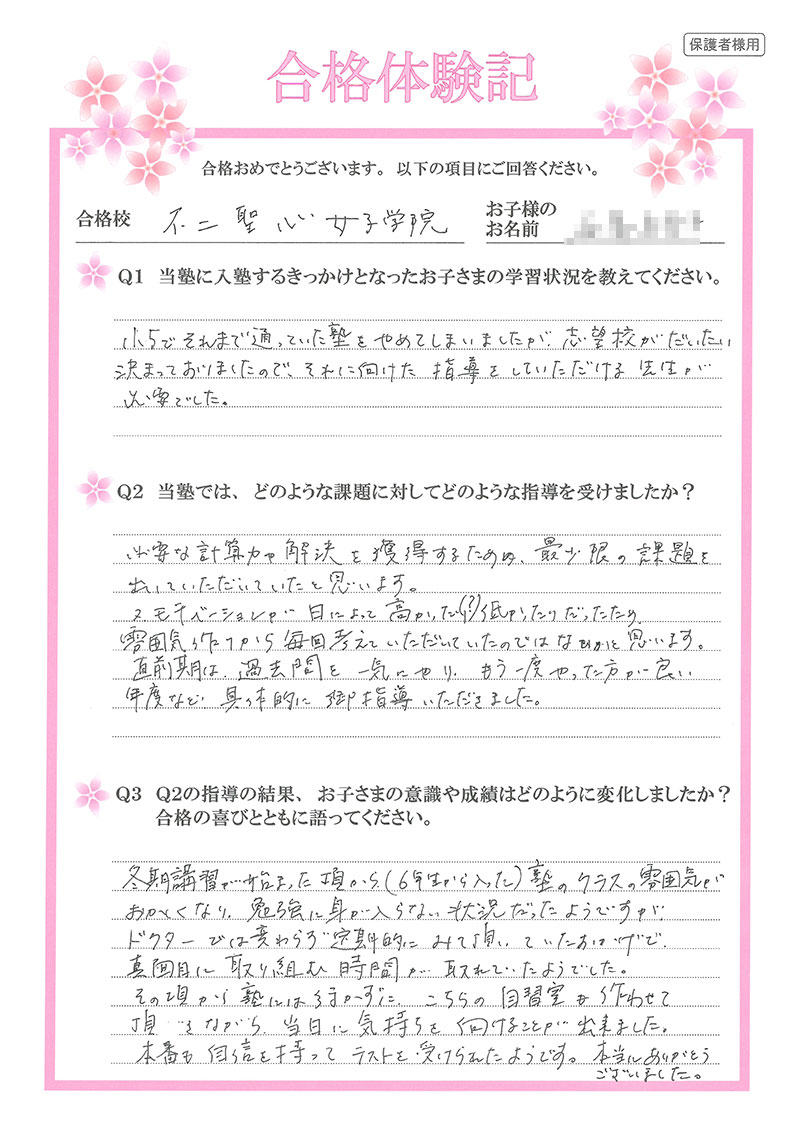 保護者様用
合格体験記
合格おめでとうございます。以下の項目にご回答ください。
合格校 不二聖心女子学院
お子様の
お名前
Q1 当塾に入塾するきっかけとなったお子さまの学習状況を教えてください。
小5でそれまで通っていた塾をやめてしまいましたが、志望校がだいたい
決まっておりましたので、それに向けた指導をしていただける先生が
必要でした。
Q2 当塾では、どのような課題に対してどのような指導を受けましたか？
必要な計算力や解決を獲得するため、最少限の課題を
出していただいていたと思います。
又モチベーションが日によって高かったり(?)低かったりだったため
雰囲気作りから毎回考えていただいていたのではないかと思います。
直前期は、過去問を一気にやり、もう一度やった方が良い
年度など、具体的に御指導いただきました。
Q3 Q2の指導の結果、お子さまの意識や成績はどのように変化しましたか？
合格の喜びとともに語ってください。
冬期講習が始まった頃から(6年生から入った)塾のクラスの雰囲気が
おかしくなり、勉強に身が入らない状況だったようですが、
ドクターでは変わらず定期的にみて頂いていたおかげで、
真面目に取り組む時間が取れていたようでした。
その頃から塾には行かずに、こちらの自習室も使わせて
頂きながら、当日に気持ちを向けることが出来ました。
本番も自信を持ってテストを受けられたようです。本当にありがとう
ございました。